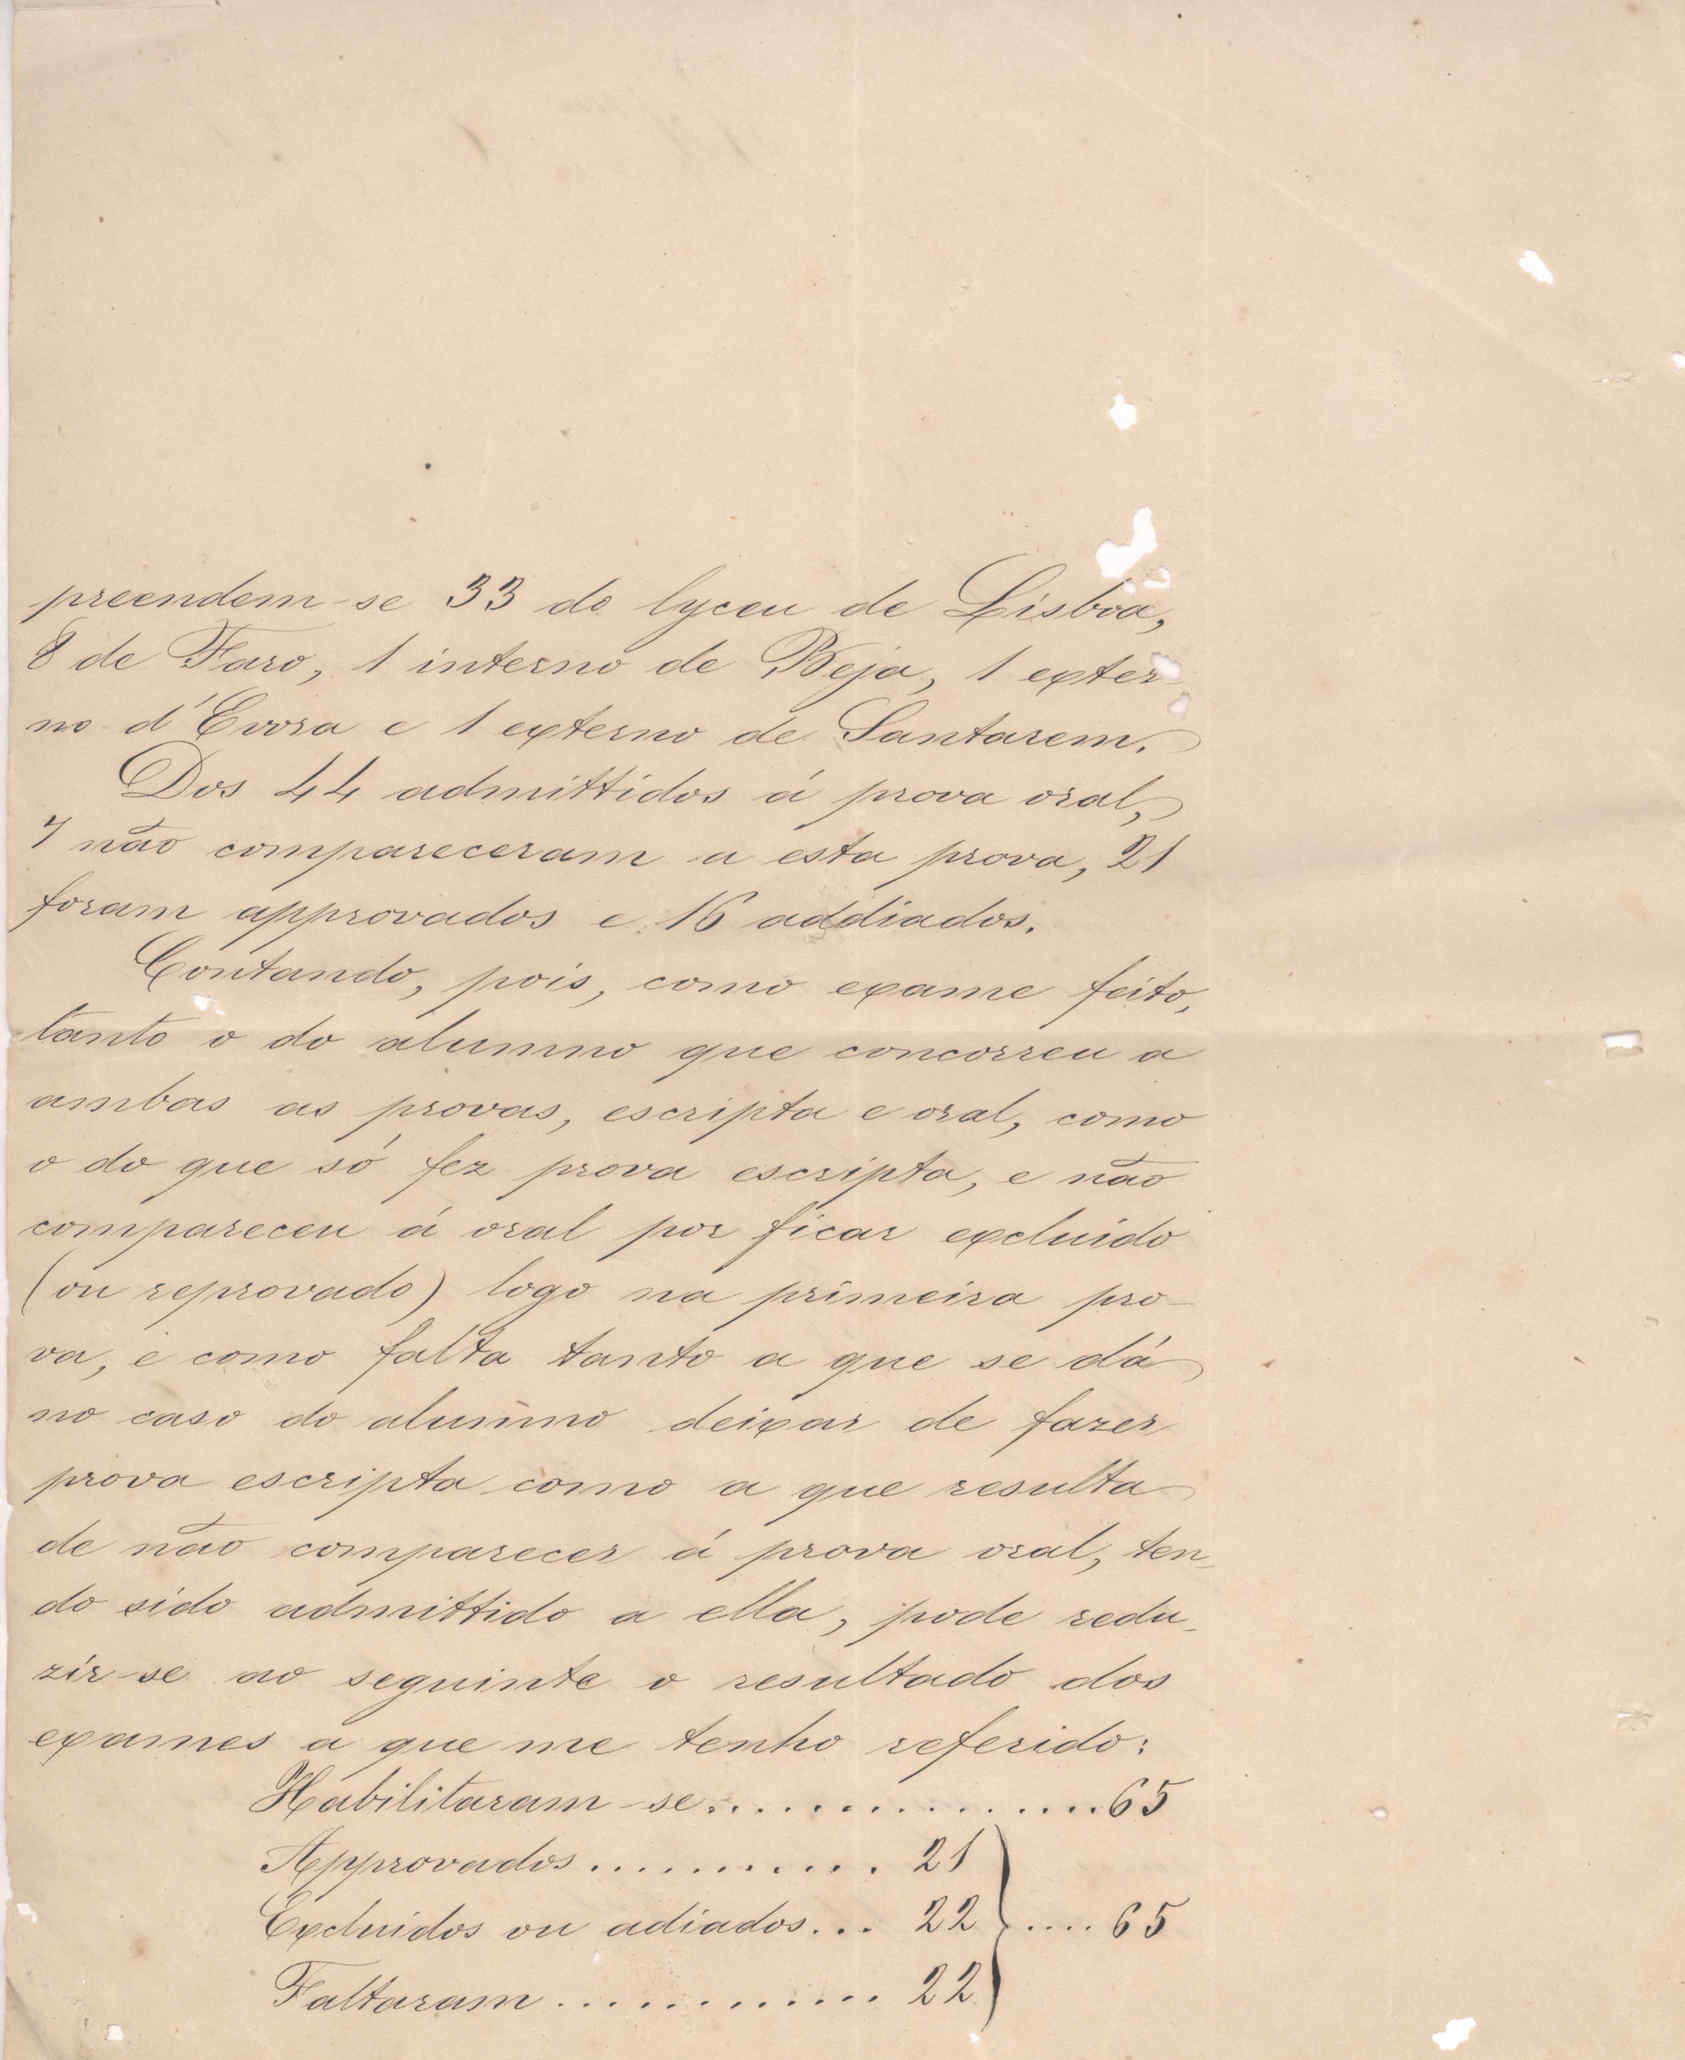 preendem-se 33 do lyceu de Lisboa,
8 de Faro, 1 interno de Beja, 1 exter-
no d'Evora e 1 externo de Santarem.
Dos 44 admittidos á prova oral,
7 não compareceram a esta prova, 21
foram approvados e 16 addiados.
Contando, pois, como exame feito,
tanto o do alumno que concorreu a
ambas as provas, escripta e oral, como
o do que só fez prova escripta, e não
compareceu á oral por ficar excluido
(ou reprovado) logo na primeira pro-
va, e como falta tanto a que se dá
no caso do alumno deixar de fazer
prova escripta como a que resulta
de não comparecer á prova oral, ten-
do sido admittido a ella, pode redu-
zir-se ao seguinte o resultado dos
exames a que me tenho referido:
Habilitaram-se................65
Approvados............ 21
Excluidos ou adiados... 22 }.... 65
Faltaram ............. 22